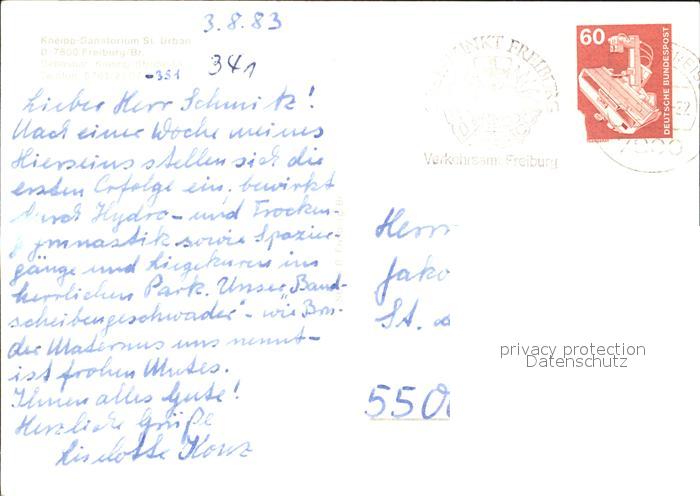 3.8.83
Kneipp-Sanatorium St. Urban
D-7800 Freiburg/Br.
-351
341
Lieber Herr Schmitz!
Nach einer Woche meines
Hierseins stellen sich die
ersten Erfolge ein, bewirkt
durch Hydro- und Trocken-
gymnastik sowie Spazier-
gänge und Liegekuren im
herrlichen Park. Unser "Band-
scheibengeschwader" - wie Bru-
der Maternus uns nennt -
ist frohen Mutes.
Ihnen alles Gute!
Herzliche Grüße
Liselotte
FREIBURG
Verkehrsamt Freiburg
60
DEUTSCHE BUNDESPOST
Herr
Jako
St.
550
privacy protection
Datenschutz